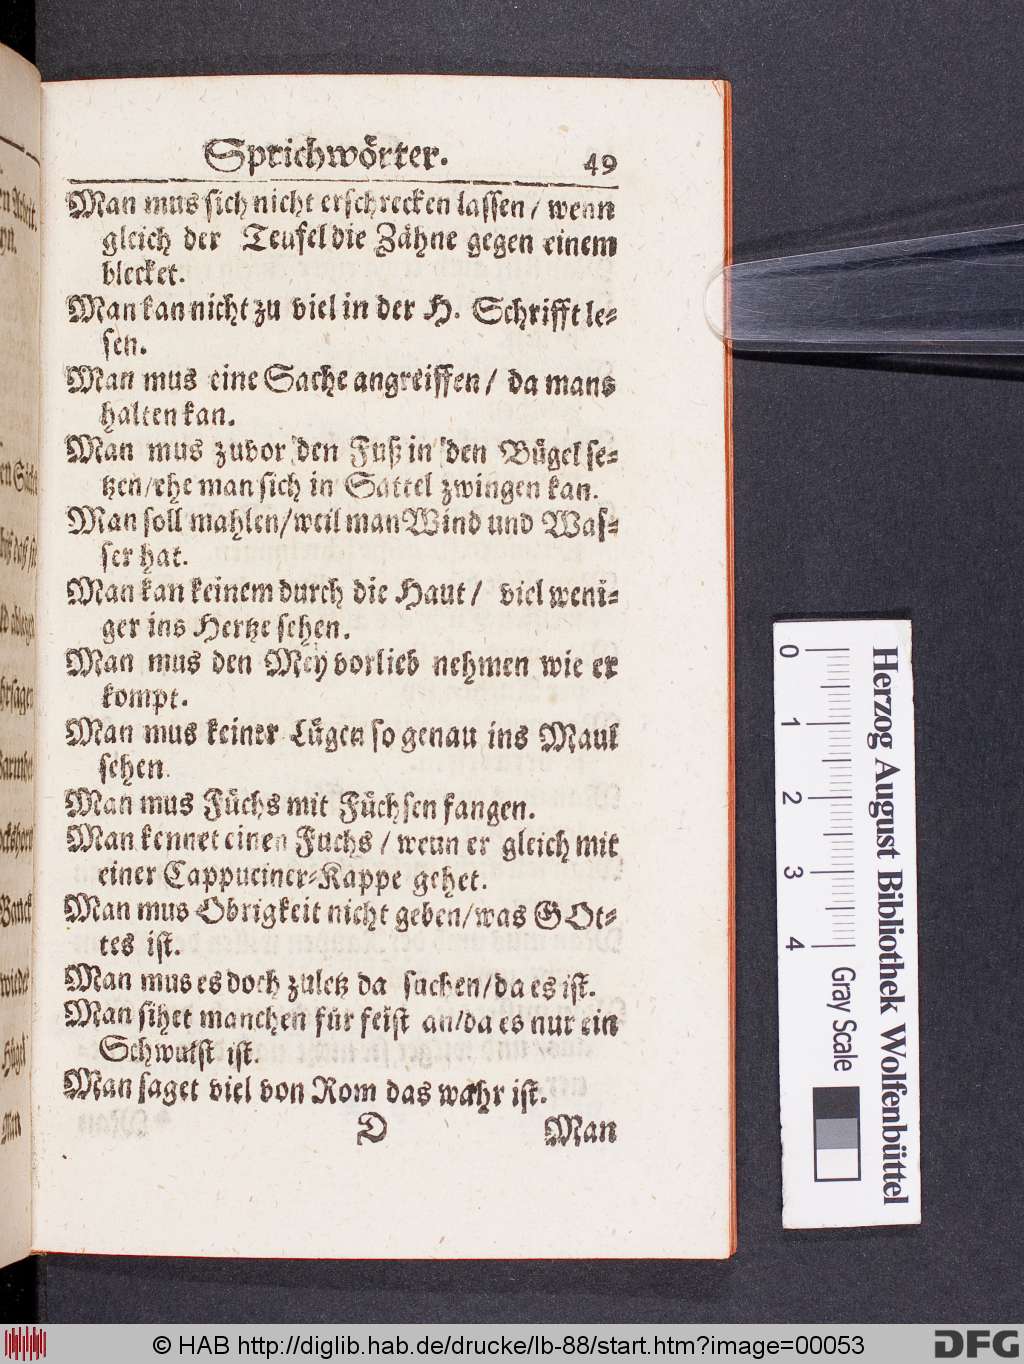 Sprichwörter. 49
Man mus sich nicht erschrecken lassen / wenn
gleich der Teufel die Zähne gegen einem
blecket.
Man kan nicht zu viel in der H. Schrifft le-
sen.
Man mus eine Sache angreiffen / da mans
halten kan.
Man mus zuvor den Fuß in den Bügel se-
tzen/ehe man sich in Sattel zwingen kan.
Man soll mahlen/weil man Wind und Was-
ser hat.
Man kan keinem durch die Haut / viel weni-
ger ins Hertze sehen.
Man mus den Mey vorlieb nehmen wie er
kompt.
Man mus keiner Lügen so genau ins Maul
sehen.
Man mus Füchs mit Füchsen fangen.
Man kennet einen Fuchs / wenn er gleich mit
einer Cappuciner-Kappe gehet.
Man mus Obrigkeit nicht geben/was GOt-
tes ist.
Man mus es doch zuletz da suchen/da es ist.
Man sihet manchen für feist an/da es nur ein
Schwulst ist.
Man saget viel von Rom das wahr ist.
D Man
0 1 2 3 4 Gray Scale
Herzog August Bibliothek Wolfenbüttel
© HAB http://diglib.hab.de/drucke/lb-88/start.htm?image=00053
DFG